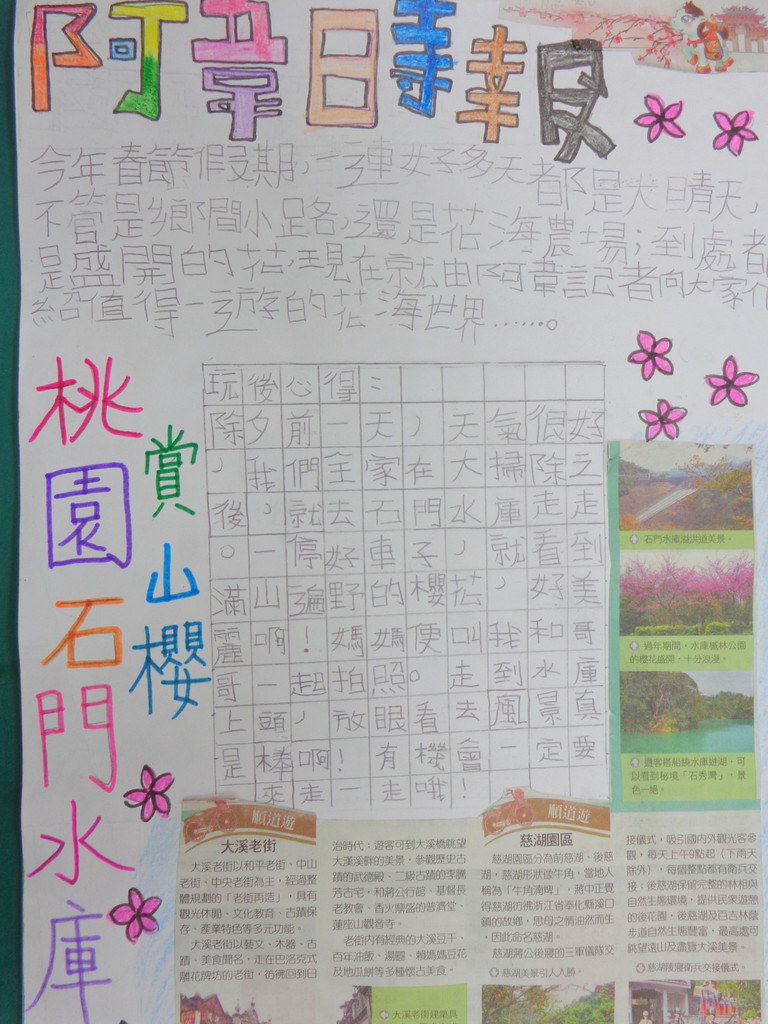 阿韋日時報
今年春節假期,一連好多天都是大晴天,
不管是鄉間小路,還是花海農場;到處都
是盛開的花,現在就由阿韋記者向大家介
紹值得一遊的花海世界……。
桃園石門水庫
賞山櫻
玩後心得:
除夕前一天,天氣很好
,我們全家在大掃除之
後,就去石門水庫走走
。一停好車子,就看到
滿山遍野的櫻花,好美
麗啊!媽媽便叫我和哥
哥一起拍照。走到水庫
上頭,放眼看去風景真
是棒啊!有機會一定要
來走一走哦!
石門水庫溢洪道美景。
過年期間,水庫楓林公園
的櫻花盛開,十分浪漫。
遊客搭船繞水庫遊湖,可
以看到秘境「石秀灣」,景
色一絕。
順道遊
大溪老街
大溪老街以和平老街、中山
老街、中央老街為主,經過整
體規劃的「老街再造」,具有
觀光休閒、文化教育、古蹟保
存、產業特色等多元功能。
大溪老街以藝文、木器、古
蹟、美食聞名,走在巴洛克式
雕花牌坊的老街,彷彿回到日
治時代;遊客可到大溪橋眺望
大漢溪畔的美景,參觀歷史古
蹟的武德殿、二級古蹟的李騰
芳古宅,和蔣公行館、基督長
老教會、香火鼎盛的普濟堂、
蓮座山觀音寺。
老街內有經典的大溪豆干、
百年油飯、湯圓、賴媽媽豆花
及地瓜餅等多種懷古美食。
大溪老街建築具
順道遊
慈湖園區
慈湖園區分為前慈湖、後慈
湖,慈湖形狀像牛角,當地人
稱為「牛角湳埤」,蔣中正覺
得慈湖仿彿浙江省奉化縣溪口
鎮的故鄉,思母之情油然而生
,因此命名慈湖。
慈湖將公後寢的三軍儀隊交
慈湖美景引人入勝。
接儀式,吸引國內外觀光客參
觀,每天上午9點起(下雨天
除外),每個整點都有衛兵交
接。後慈湖保留完整的林相與
自然生態環境,提供民眾遊憩
的後花園,後慈湖及百吉林蔭
步道自然生態豐富,最高處可
眺望遠山及盡覽大溪美景。
慈湖陵寢衛兵交接儀式。